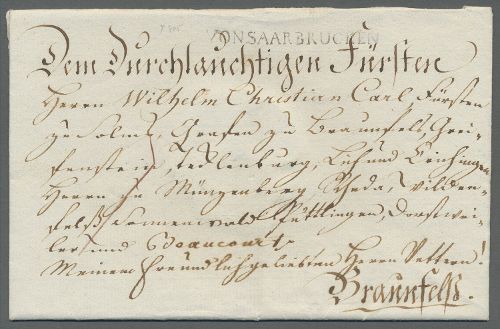 VON SAARBRÜCKEN
Dem Durchlauchtigen Fürsten
Herrn Wilhelm Christian Carl, Fürsten
zu Solms, Grafen zu Braunfels, Grei-
fenstein, Tecklenburg, und Crichingen
Herrn zu Müngenberg, Rheda, Wilden-
felß, Sonnenwald, Püttlingen, Dorstwei-
ler und Beaucourt,
Meinem freundlich geliebten Herrn Vettern!
Braunfelß.